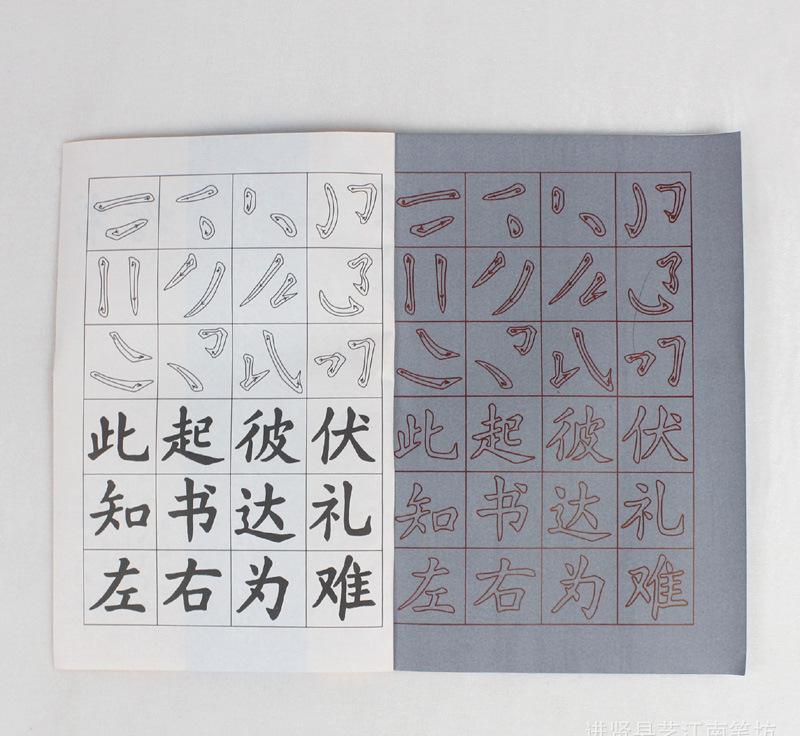 此起彼伏 此起彼伏
知书达礼 知书达礼
左右为难 左右为难
进贤县艺江南笔坊